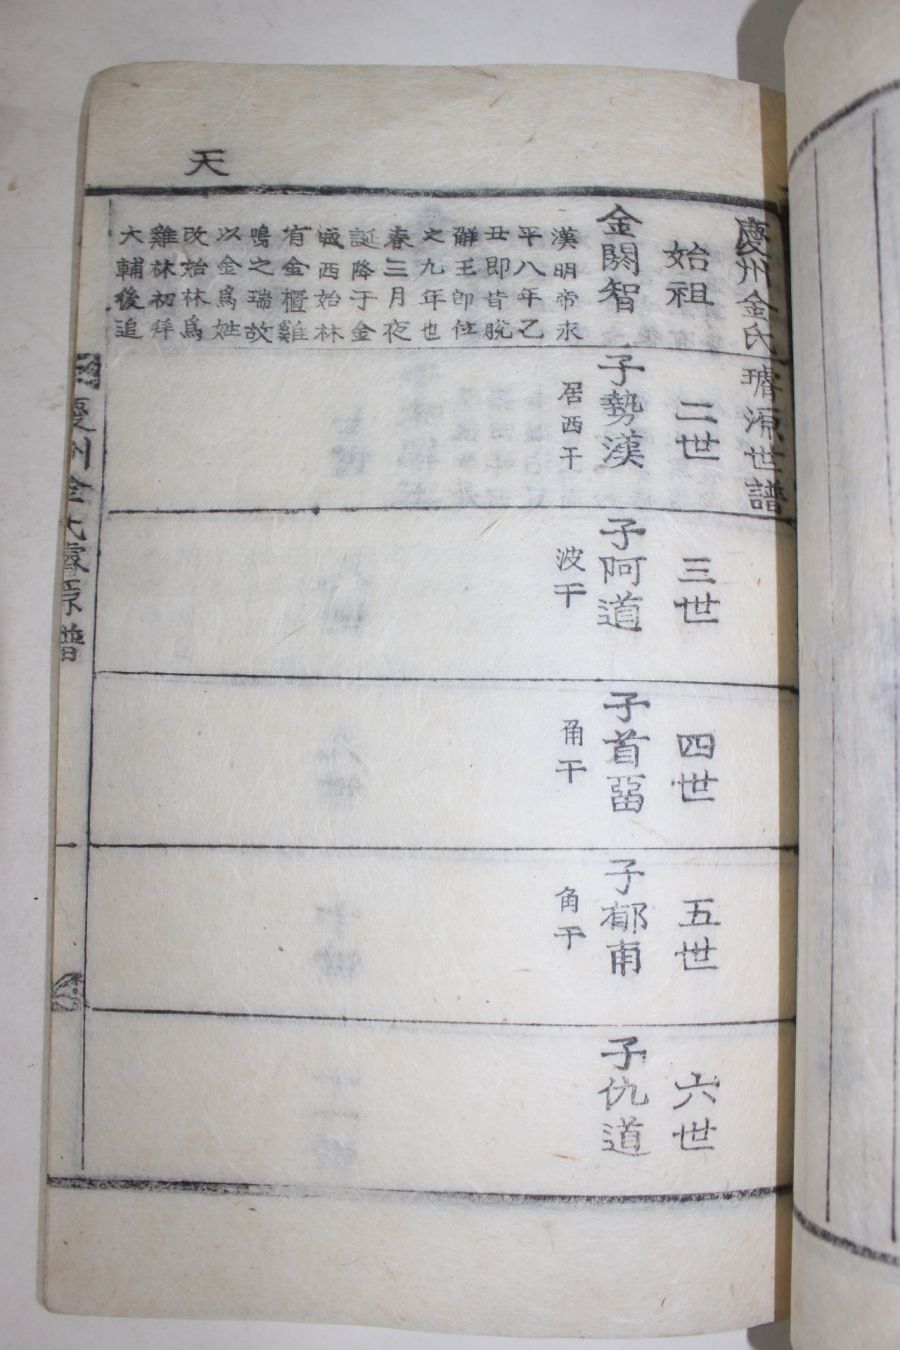 天
慶州金氏璿源世譜
始祖
二世
三世
四世
五世
六世
金閼智
漢明帝永
平八年乙
丑即昔脫
解王即位
之九年也
春三月夜
誕降于金
城西始林
有金櫃雞
鳴之瑞故
以金爲姓
改始林爲
雞林初拜
大輔後追
子勢漢
居西干
子阿道
波干
子首畱
角干
子郁甫
角干
子仇道
慶州金氏璿源譜